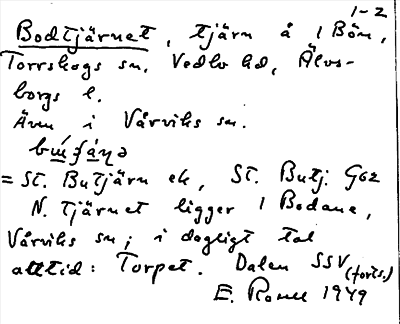 1-2
Bodtjärnet, tjärn å 1 Bön,
Torrskogs sn. Vedbo hd, Älvs-
borgs l.
Även i Vårviks sn.
= St. Butjärn ek, St. Butj. G62
N. Tjärnet ligger 1 Bodane,
Vårviks sn; i dagligt tal
alltid: Torpet. Dalen SSV (forts.)
E. 1949